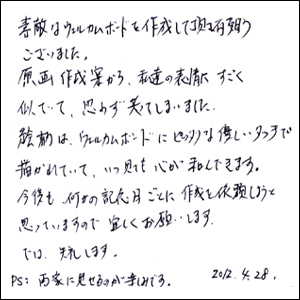 素敵なウェルカムボードを作成して頂き有難う
ございました。
原画作成案から、私達の表情にすごく
似ていて、思わず笑ってしまいました。
絵柄は、ウェルカムボードにピッタリな優しいタッチで
描かれていて、いつ見ても心が和んできます。
今後も何かの記念日ごとに作成を依頼しようと
思っていますので宜しくお願いします。
では、失礼します。
PS: 両家に見せるのが楽しみです。 2012.4.28.